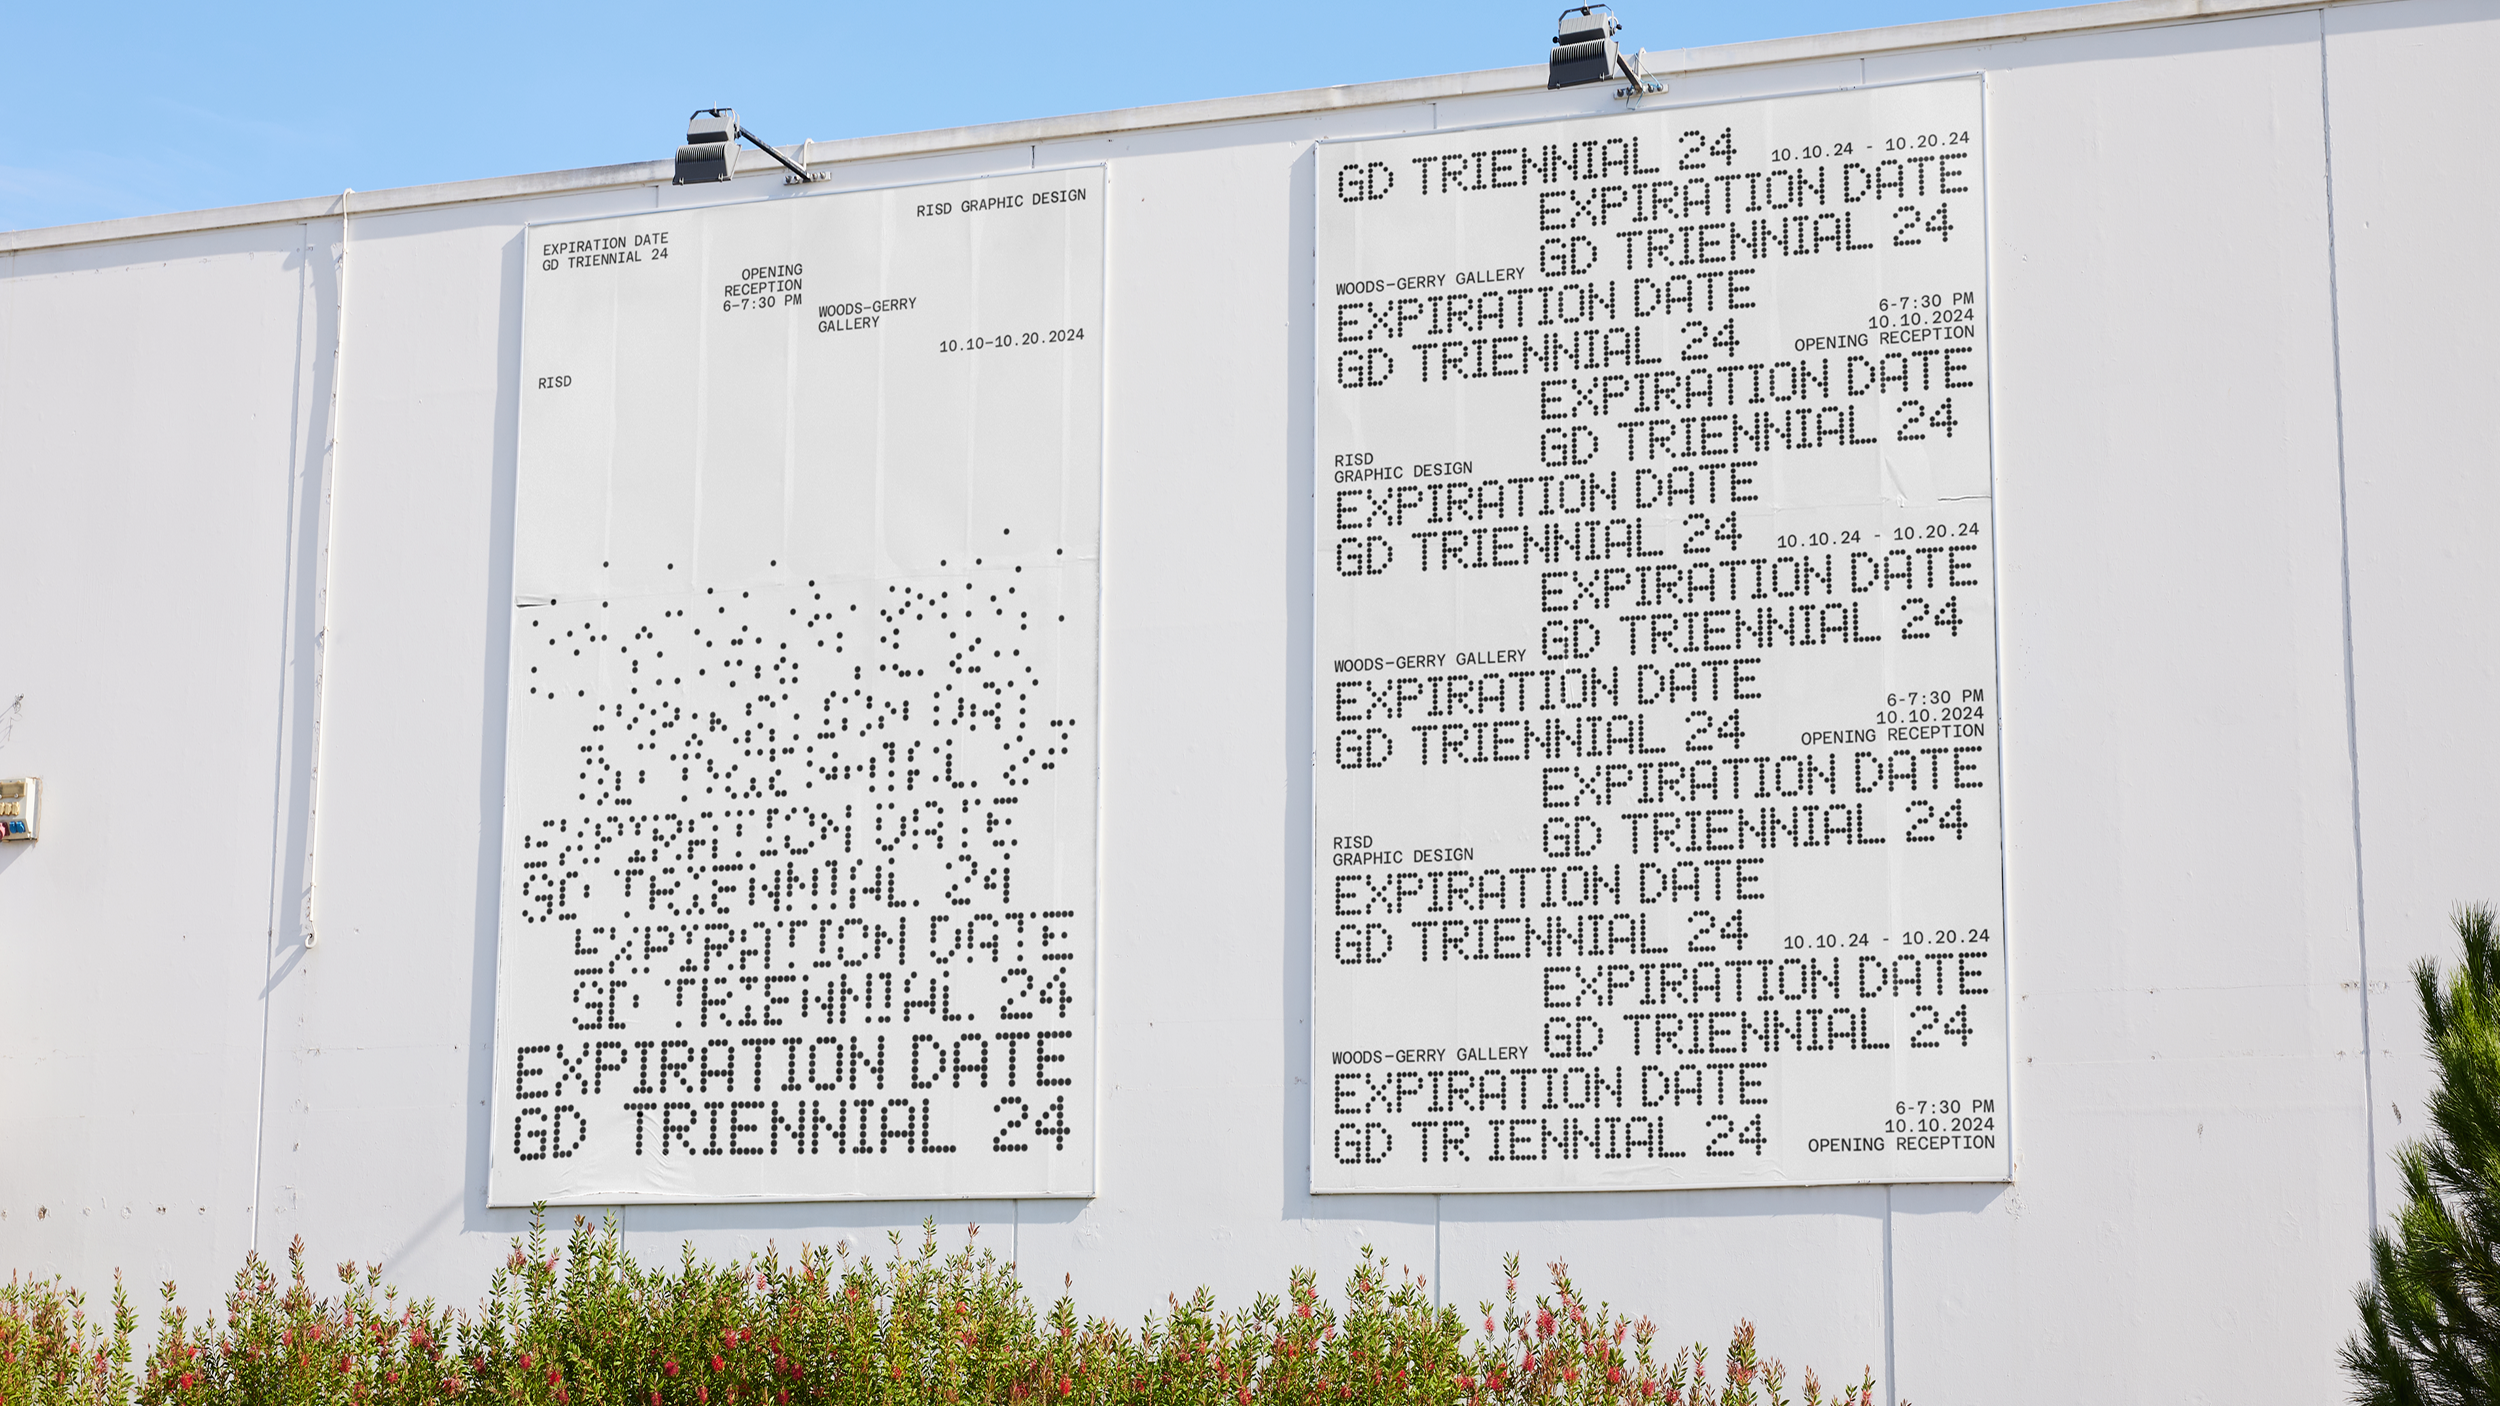 RISD GRAPHIC DESIGN
EXPIRATION DATE
GD TRIENNIAL 24
OPENING
RECEPTION
6–7:30 PM
WOODS–GERRY
GALLERY
10.10–10.20.2024
RISD
EXPIRATION DATE
GD TRIENNIAL 24
EXPIRATION DATE
GD TRIENNIAL 24
EXPIRATION DATE
GD TRIENNIAL 24
GD TRIENNIAL 24
10.10.24 - 10.20.24
EXPIRATION DATE
GD TRIENNIAL 24
WOODS–GERRY GALLERY
EXPIRATION DATE
GD TRIENNIAL 24
6-7:30 PM
10.10.2024
OPENING RECEPTION
EXPIRATION DATE
GD TRIENNIAL 24
RISD
GRAPHIC DESIGN
EXPIRATION DATE
GD TRIENNIAL 24
10.10.24 - 10.20.24
EXPIRATION DATE
GD TRIENNIAL 24
WOODS–GERRY GALLERY
EXPIRATION DATE
GD TRIENNIAL 24
6-7:30 PM
10.10.2024
OPENING RECEPTION
EXPIRATION DATE
GD TRIENNIAL 24
RISD
GRAPHIC DESIGN
EXPIRATION DATE
GD TRIENNIAL 24
10.10.24 - 10.20.24
EXPIRATION DATE
GD TRIENNIAL 24
WOODS–GERRY GALLERY
EXPIRATION DATE
GD TR IENNIAL 24
6-7:30 PM
10.10.2024
OPENING RECEPTION